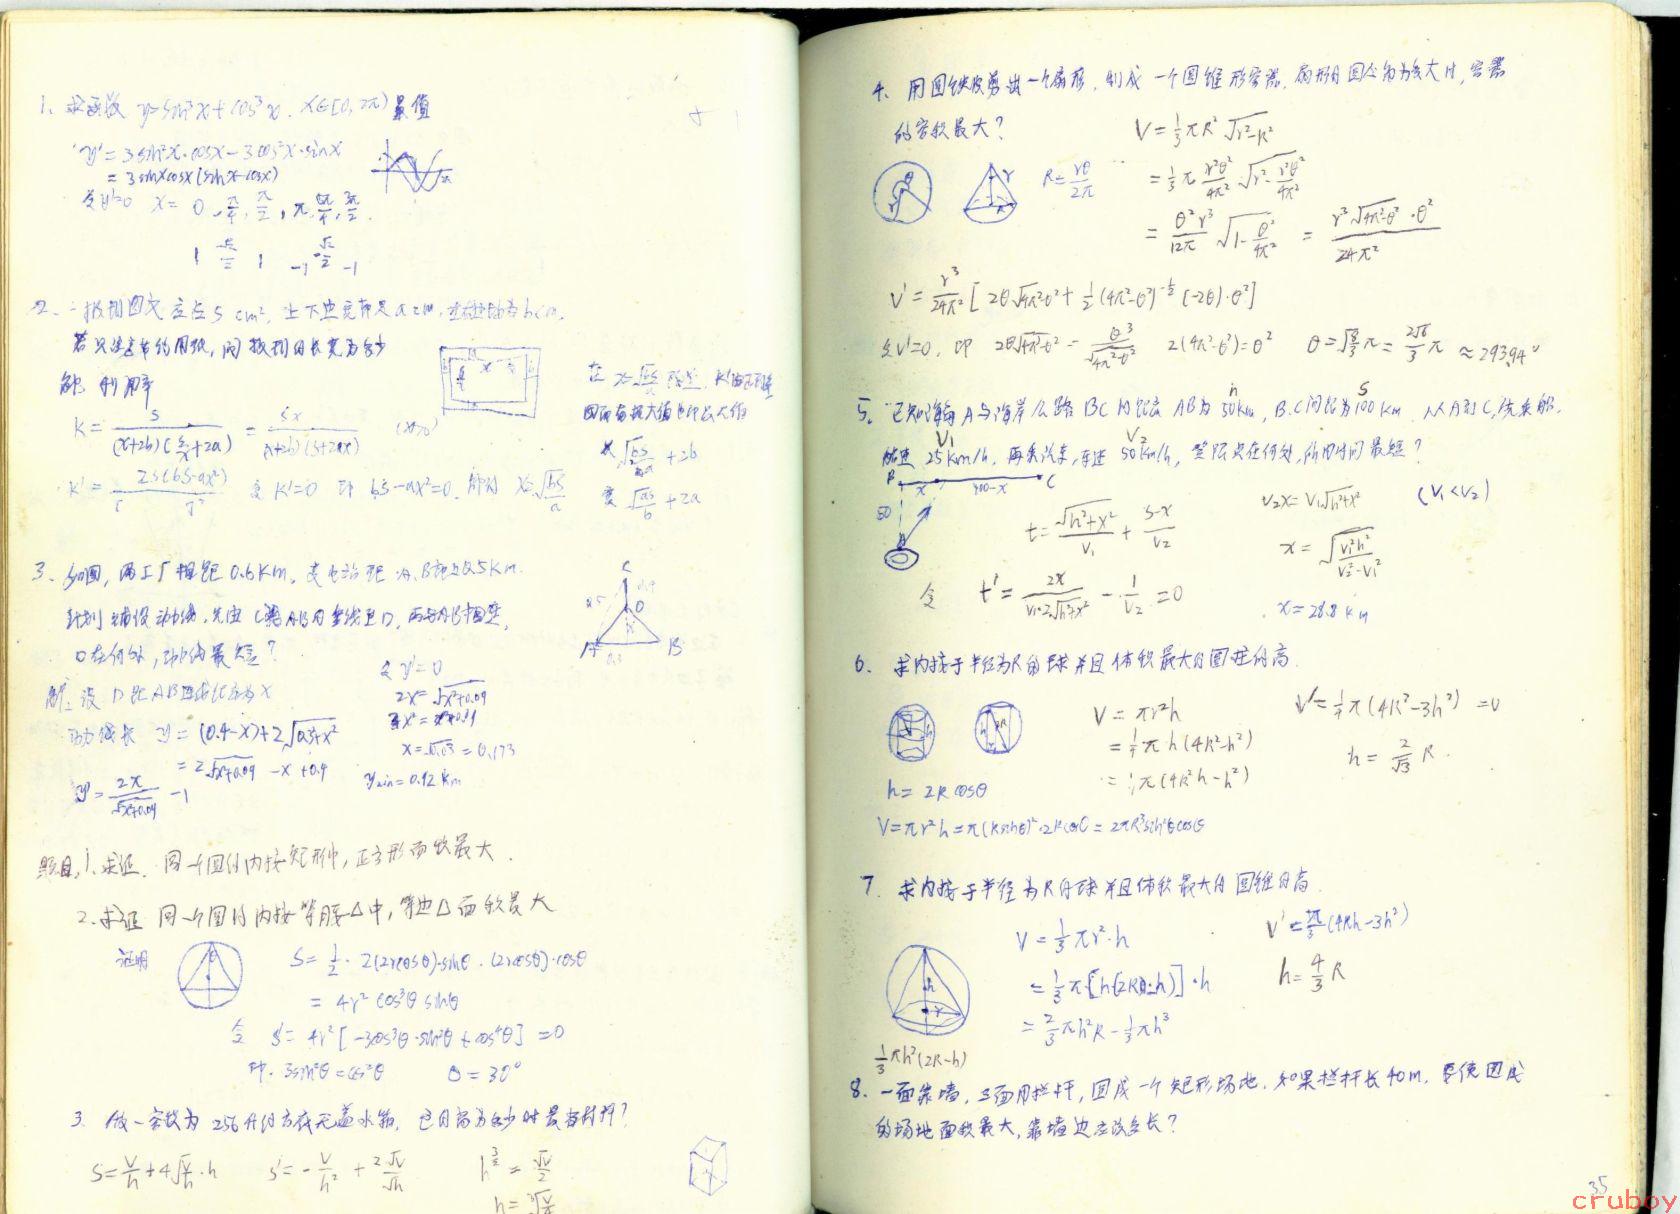 1. 求函数 y=sin³x+cos³x. x∈[0, 2π) 最值
y'=3sin²x·cosx-3cos²x·sinx
=3sinxcosx(sinx-cosx)
令y'=0 x= 0, π/4, π/2, π, 5π/4, 3π/2.
1 √2/2 1 -1 -√2/2 -1
2. 一报刊图文应占S cm², 上下边宽都是a cm, 左右都为b cm,
若只注意节约用纸, 问报刊的长宽为多少
解: 利用率
K= S/((x+2b)(S/x+2a)) = Sx/((x+2b)(S+2ax)) (x>0)
K'= 2S(bS-ax²)/( )² 令 K'=0 即 bS-ax²=0. 即得 x=√(bS/a)
在 x=√(bS/a)
因而有极大值也即最大值
长 √(bS/a) +2b
宽 √(aS/b) +2a
3. 如图, 两工厂相距 0.6km, 变电站距 A, B都是0.5km.
计划铺设动力线, 先由 C沿AB的垂线至D, 再与AB相连,
D在何处, 动力线最短?
解: 设 D距AB垂线长为x
动力线长 y= (0.4-x)+2√(0.3²+x²)
=2√(x²+0.09) -x+0.4
y'= 2x/√(x²+0.09) -1
令 y'=0
2x=√(x²+0.09)
4x²=x²+0.09
x=√0.03=0.173
ymin=0.92 km
C
0.5
0.4
D
x
A
B
0.3
题目, 1. 求证. 同一个圆的内接矩形中, 正方形面积最大.
2. 求证 同一个圆的内接等腰△中, 等边△面积最大
证明 S= 1/2 · 2(2rcosθ)·sinθ · (2rcosθ)·cosθ
= 4r² cos³θ sinθ
令 S'= 4r² [-3cos²θ·sin²θ + cos⁴θ] =0
即. 3sin²θ=cos²θ θ=30°
3. 做一容积为 256升的方底无盖水箱, 它的高为多少时最省材料?
S= V/h +4√(V/h)·h S'= -V/h² + 2√V/√h h^(3/2) = √V/2
4. 用圆铁皮剪出一个扇形, 制成一个圆锥形容器, 扇形的圆心角为多大时, 容器
的容积最大? V= 1/3 πR² √(r²-R²)
R= rθ/2π = 1/3 π r²θ²/4π² · √(r²- r²θ²/4π²)
= θ²r³/12π √(1- θ²/4π²) = r³√(4π²-θ²)·θ² / 24π²
V'= r³/24π² [2θ√(4π²-θ²)+ 1/2 (4π²-θ²)^(-1/2) (-2θ)·θ²]
令V'=0, 即 2θ√(4π²-θ²) = θ³/√(4π²-θ²) 2(4π²-θ²)=θ² θ=√(8/3)π= 2√6/3 π ≈293.94°
h S
5. 已知海岛A与海岸公路BC的距离 AB为 50km, B.C间距为100km 从A到C, 先乘船,
V₁ V₂
船速 25km/h, 再乘汽车, 车速 50km/h, 登陆点在何处, 所用时间最短?
B x 100-x C
50
A
t= √(h²+x²)/V₁ + (S-x)/V₂
令 t'= 2x/(V₁·2√(h²+x²)) - 1/V₂ =0
V₂x=V₁√(h²+x²) (V₁<V₂)
x= √(V₁²h²/(V₂²-V₁²))
x=28.8 km
6. 求内接于半径为R的球并且体积最大的圆柱的高.
V= πr²h
= 1/4 π h(4R²-h²)
= 1/4 π(4R²h-h³)
V'= 1/4 π(4R²-3h²) =0
h= 2/√3 R.
h= 2R cosθ
V=πr²h=π(Rsinθ)²·2Rcosθ= 2πR³sin²θcosθ
7. 求内接于半径为R的球并且体积最大的圆锥的高
V= 1/3 πr²·h
= 1/3 π[h(2R-h)]·h
= 2/3 πh²R- 1/3 πh³
V'= π/3 (4Rh-3h²)
h= 4/3 R
1/3 πh²(2R-h)
8. 一面靠墙, 三面用栏杆, 围成一个矩形场地. 如果栏杆长40m, 要使围成
的场地面积最大, 靠墙边应该多长?
35
cruboy